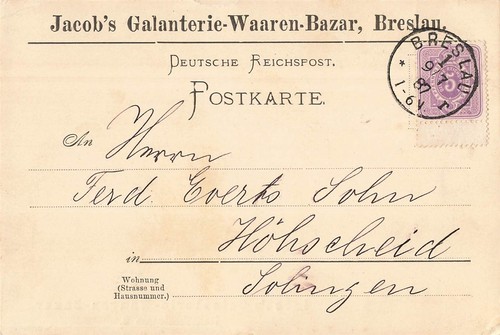 Jacob's Galanterie-Waaren-Bazar, Breslau.
DEUTSCHE REICHSPOST.
POSTKARTE.
* BRESLAU
An Herrn
Ferd. Everts Sohn
Höhscheid
in
Wohnung
(Strasse und
Hausnummer.)
Solingen